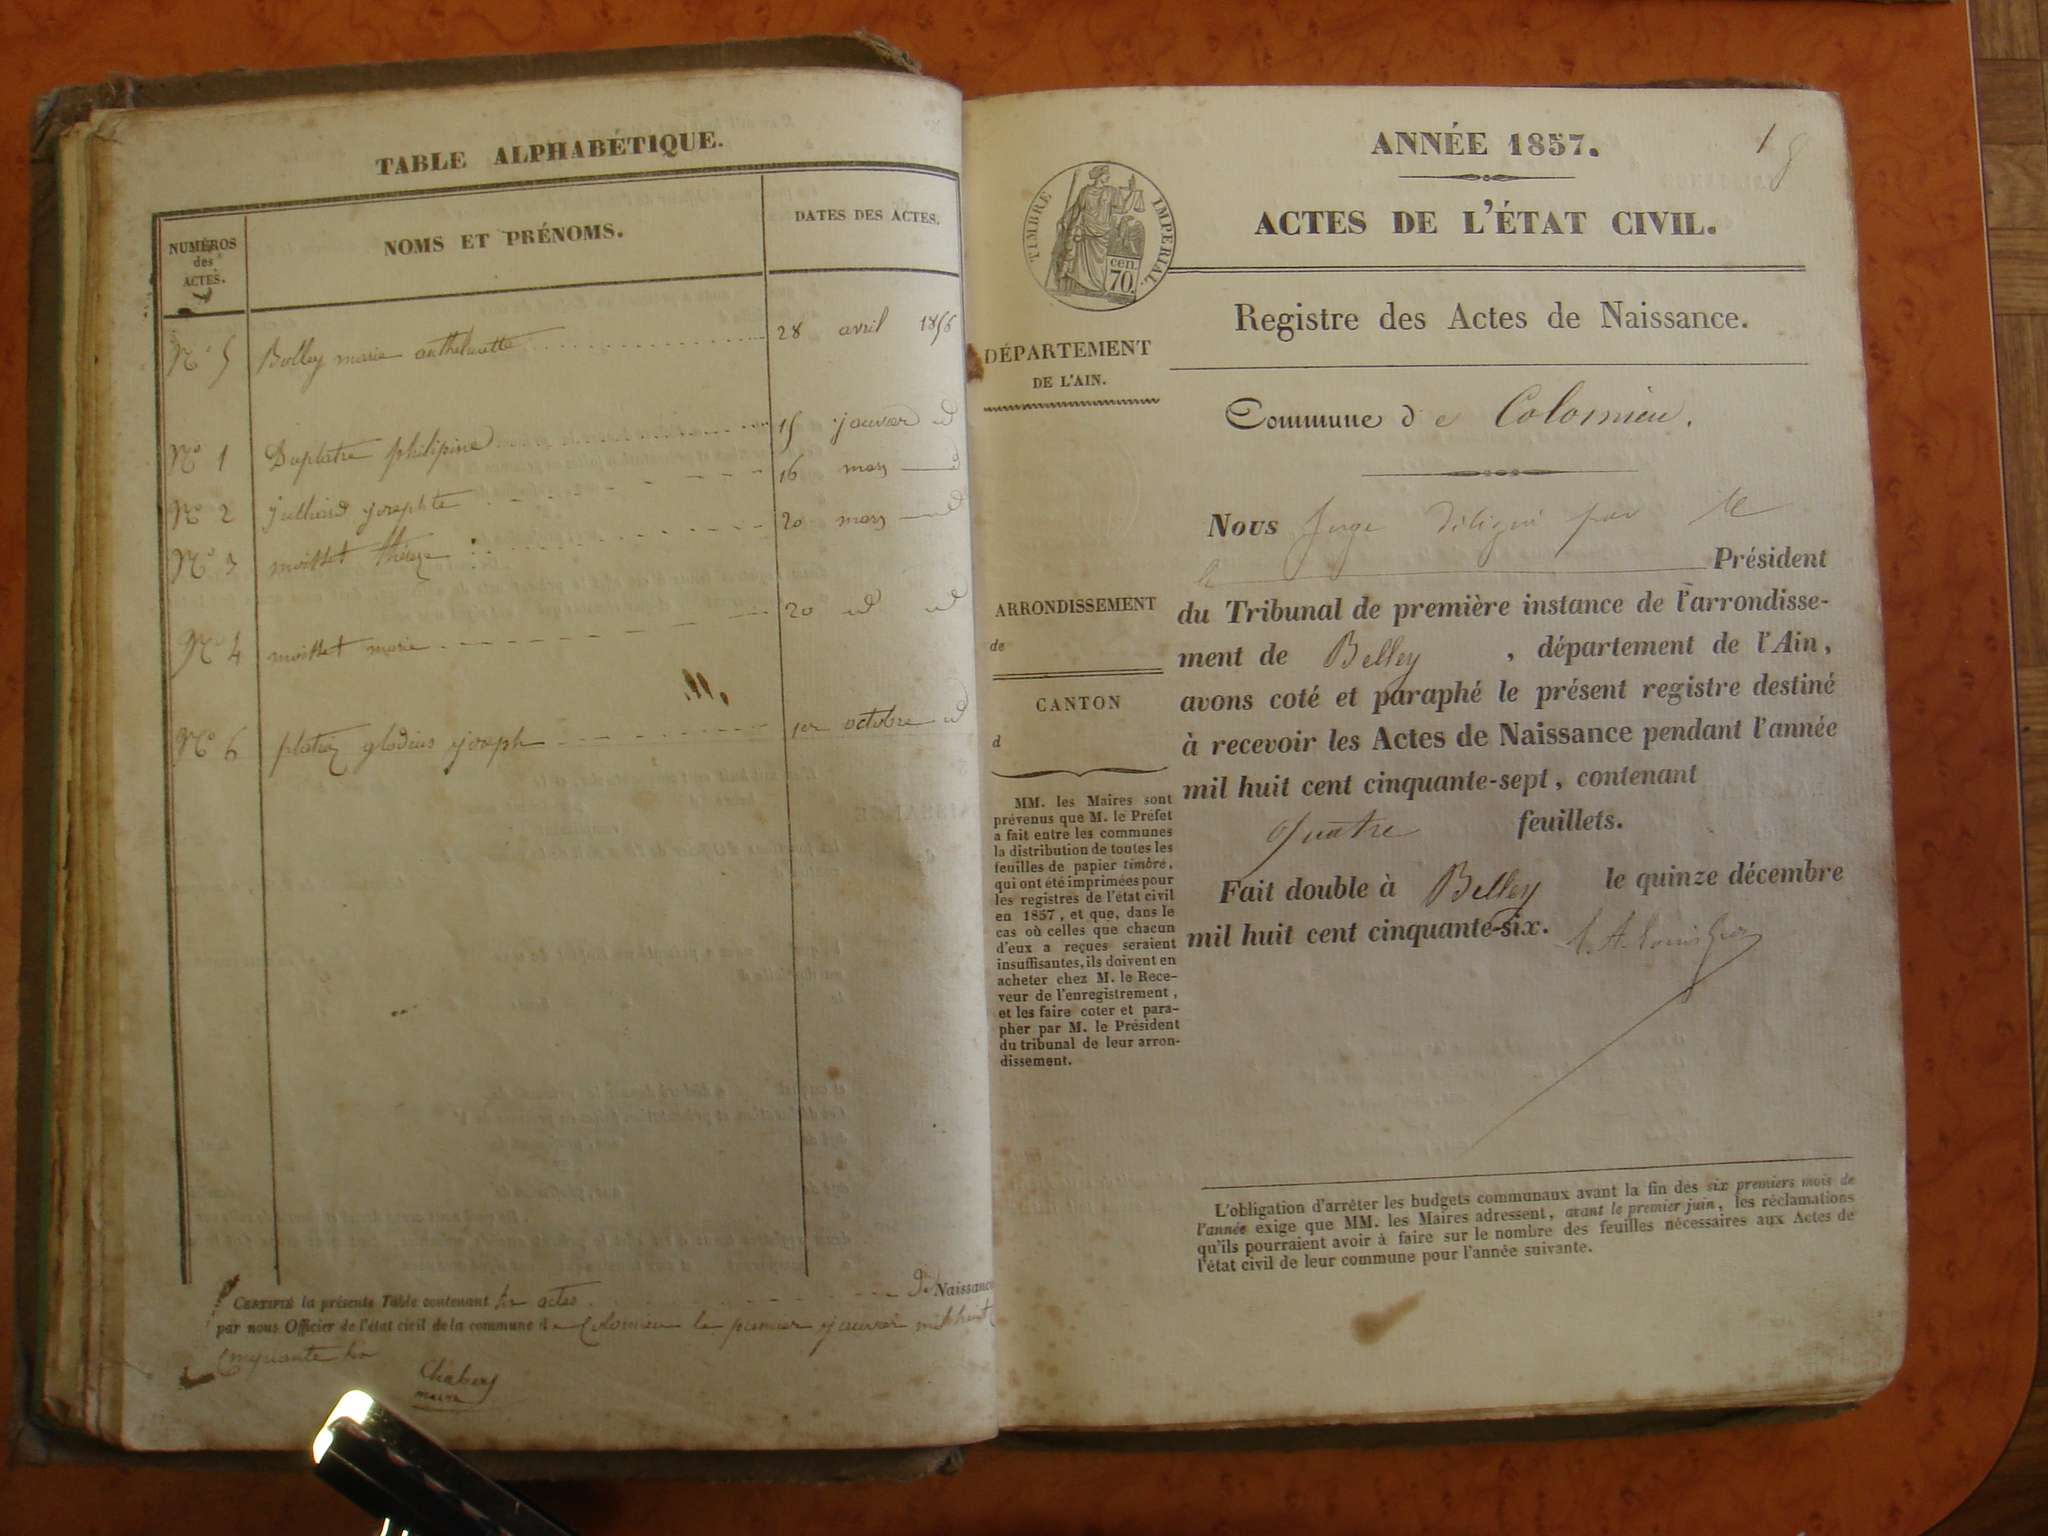 TABLE ALPHABÉTIQUE.
NUMÉROS des ACTES.
NOMS ET PRÉNOMS.
DATES DES ACTES.
No 5 Bolley marie anthelmette 28 avril 1856
No 1 Duplatre philipine 15 janvier id
No 2 julliand josephte 16 mars id
No 3 moillet thérèze 20 mars id
No 4 moillet marie 20 id id
No 6 platiez glodius joseph 1er octobre id
CERTIFIÉ la présente Table contenant six actes de Naissance
par nous Officier de l'état civil de la commune de Colomieu le premier janvier mil huit
cinquante six
Chabert
maire
ANNÉE 1857.
1
ACTES DE L'ÉTAT CIVIL.
TIMBRE IMPERIAL.
cen.
70.
Registre des Actes de Naissance.
DÉPARTEMENT
DE L'AIN.
Commune de Colomieu.
ARRONDISSEMENT
de
CANTON
d
MM. les Maires sont
prévenus que M. le Préfet
a fait entre les communes
la distribution de toutes les
feuilles de papier timbré,
qui ont été imprimées pour
les registres de l'état civil
en 1857, et que, dans le
cas où celles que chacun
d'eux a reçues seraient
insuffisantes, ils doivent en
acheter chez M. le Rece-
veur de l'enregistrement,
et les faire coter et para-
pher par M. le Président
du tribunal de leur arron-
dissement.
Nous Juge délégué par Mr
le Président
du Tribunal de première instance de l'arrondisse-
ment de Belley, département de l'Ain,
avons coté et paraphé le présent registre destiné
à recevoir les Actes de Naissance pendant l'année
mil huit cent cinquante-sept, contenant
quatre feuillets.
Fait double à Belley le quinze décembre
mil huit cent cinquante-six.
L'obligation d'arrêter les budgets communaux avant la fin des six premiers mois de
l'année exige que MM. les Maires adressent, avant le premier juin, les réclamations
qu'ils pourraient avoir à faire sur le nombre des feuilles nécessaires aux Actes de
l'état civil de leur commune pour l'année suivante.